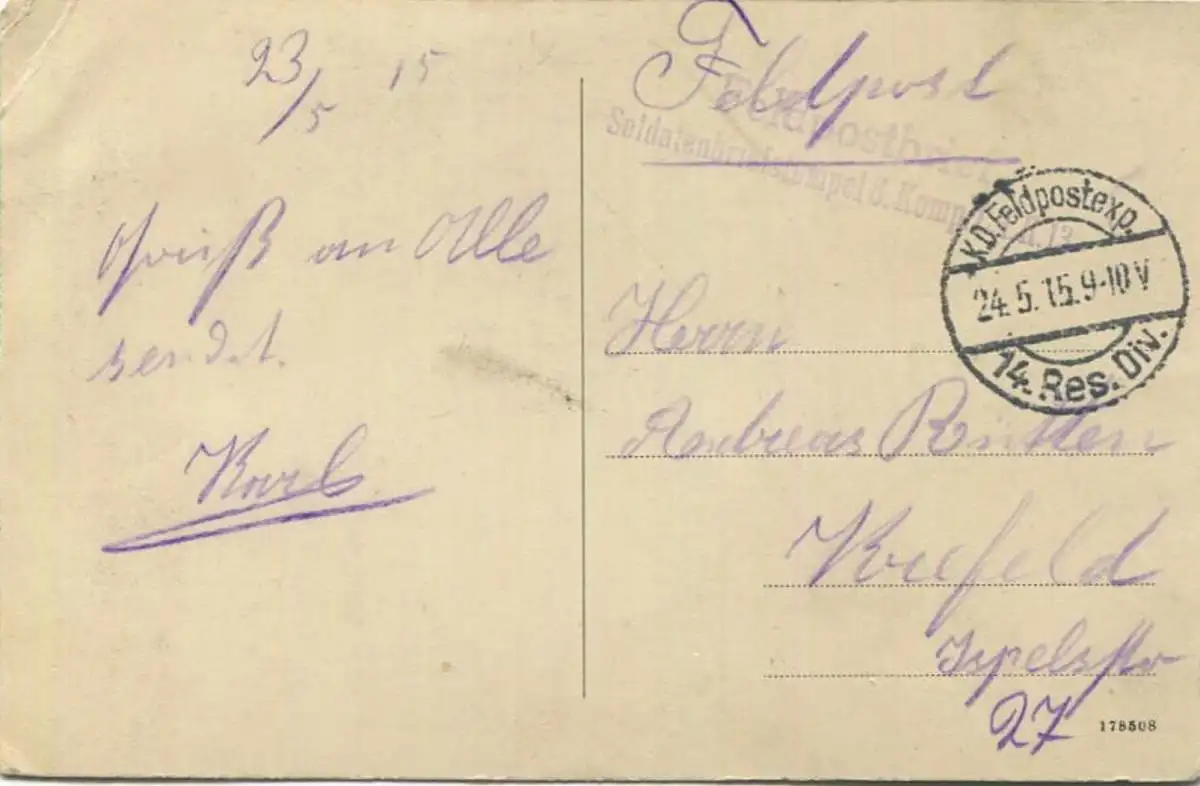 23/5 15
Gruß an Alle
sendet.
Karl
Feldpost
Feldpostbrief
Soldatenbriefstempel 8. Komp.
K.D. Feldpostexp.
24.5.15. 9-10 V
14. Res. Div.
Herrn
Andreas Rütten
Krefeld
Ispelsstr
27
178508